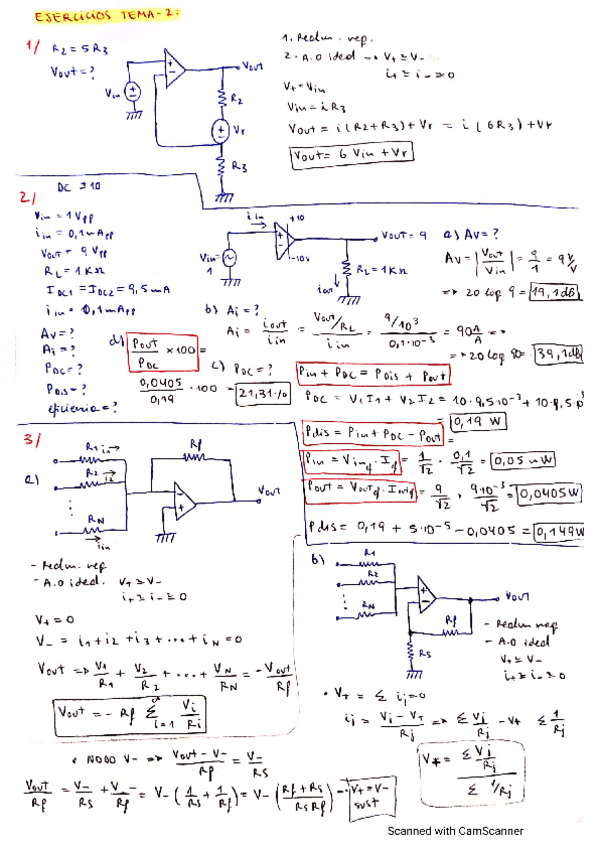 EJERCICIOS TEMA-2:
1/ R2 = 5R3
Vout = ?
Vin
Vout
R2
Vr
R3
1. Realim. neg.
2. A.O ideal → V+ ≅ V-
i+ ≅ i- ≅ 0
V+ = Vin
Vin = i R3
Vout = i (R2+R3) + Vr = i (6R3) + Vr
Vout = 6 Vin + Vr
2/
DC ±10
Vin = 1 Vpp
iin = 0,1mApp
Vout = 9 Vpp
RL = 1KΩ
IDC1 = IDC2 = 9,5mA
iin = 0,1mApp
Av = ?
Ai = ?
PDC = ?
PDis = ?
eficiencia = ?
iin
+10
-10V
Vin = 1
Vout = 9
RL = 1KΩ
iout
a) Av = ?
Av = |Vout/Vin| = 9/1 = 9 V/V
=> 20 log 9 = 19,1db
b) Ai = ?
Ai = iout/iin = (Vout/RL)/iin = (9/10^3)/(0,1·10^-3) = 90 A/A =>
=> 20 log 90 = 39,1db
c) PDC = ?
Pin + PDC = PDis + Pout
PDC = V1I1 + V2I2 = 10·9,5·10^-3 + 10·9,5·10^-3
= 0,19 W
d) Pout/PDC x100 =
0,0405/0,19 · 100 = 21,31%
Pdis = Pin + PDC - Pout =
Pin = Vinq · Iq = 1/√2 · 0,1/√2 = 0,05 mW
Pout = Voutq · Ioutq = 9/√2 · 9·10^-3/√2 = 0,0405W
Pdis = 0,19 + 5·10^-5 - 0,0405 = 0,149W
3/
a)
R1
R2
RN
iin
Rf
Vout
- Realim. neg
- A.O ideal. V+ ≅ V-
i+ ≅ i- ≅ 0
V+ = 0
V- = i1 + i2 + i3 + ... + iN = 0
Vout => V1/R1 + V2/R2 + ... + VN/RN = -Vout/Rf
Vout = - Rf Σ i=1 Vi/Ri
b)
R1
R2
RN
Vout
Rf
RS
- Realim neg
- A.O ideal
V+ ≅ V-
i+ ≅ i- ≅ 0
• V+ = Σ ij = 0
ij = (Vj - V+)/Rj => Σ Vj/Rj - V+ Σ 1/Rj
V+ = (Σ Vj/Rj)/(Σ 1/Rj)
• NODO V- => (Vout - V-)/Rf = V-/RS
Vout/Rf = V-/RS + V-/Rf = V- (1/RS + 1/Rf) = V- ((Rf + RS)/(RS Rf)) → V+ = V- sust
Scanned with CamScanner